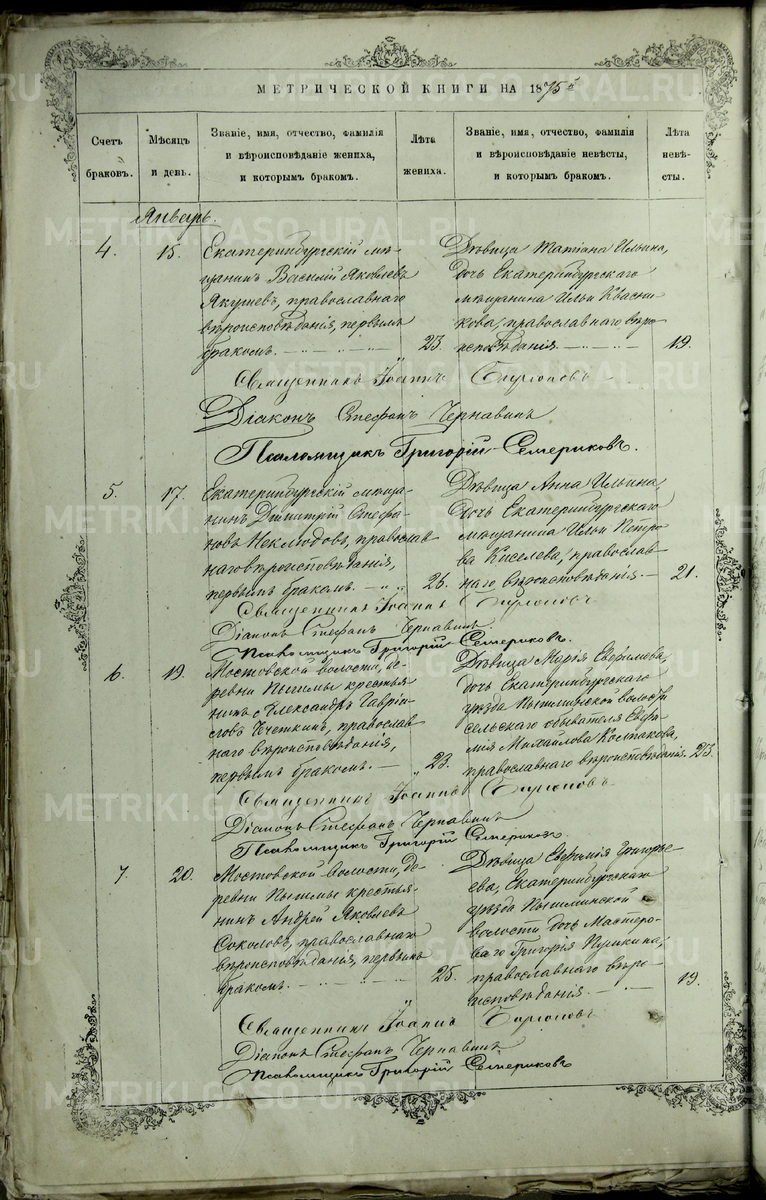 МЕТРИЧЕСКОЙ КНИГИ НА 1875 г.
Счетъ браковъ.
Мѣсяцъ и день.
Званіе, имя, отчество, фамилія
и вѣроисповѣданіе жениха,
и которымъ бракомъ.
Лѣта жениха.
Званіе, имя, отчество, фамилія
и вѣроисповѣданіе невѣсты,
и которымъ бракомъ.
Лѣта невѣсты.
Январь.
4. 15.
Екатеринбургскій мѣ-
щанинъ Василій Яковлевъ
Якушевъ, православнаго
вѣроисповѣданія, первымъ
бракомъ. 23.
Дѣвица Татіана Ильина,
дочь Екатеринбургскаго
мѣщанина Ильи Квасни-
кова, православнаго вѣро-
исповѣданія. 19.
Священникъ Іоаннъ
Діаконъ Стефанъ Чернавинъ
Псаломщикъ Григорій Семериковъ.
5. 17.
Екатеринбургскій мѣща-
нинъ Димитрій Стефа-
новъ Неклюдовъ, православ-
наго вѣроисповѣданія,
первымъ бракомъ. 26.
Дѣвица Анна Ильина,
дочь Екатеринбургскаго
мѣщанина Ильи Петро-
ва Киселева, православ-
наго вѣроисповѣданія. 21.
Священникъ Іоаннъ
Діаконъ Стефанъ Чернавинъ
Псаломщикъ Григорій Семериковъ.
6. 19.
Мостовской волости, де-
ревни Пышмы крестья-
нинъ Александръ Гаврій-
ловъ Чечеткинъ, православ-
наго вѣроисповѣданія,
первымъ бракомъ. 23.
Дѣвица Марія Евфимова,
дочь Екатеринбургскаго
уѣзда Пышминской волости
сельскаго обывателя Евфи-
мія Михайлова Колпакова,
православнаго вѣроисповѣданія. 23.
Священникъ Іоаннъ
Діаконъ Стефанъ Чернавинъ
Псаломщикъ Григорій Семериковъ.
7. 20.
Мостовской волости, де-
ревни Пышмы крестья-
нинъ Андрей Яковлевъ
Соколовъ, православнаго
вѣроисповѣданія, первымъ
бракомъ. 25.
Дѣвица Евфимія Григорье-
ева, Екатеринбургскаго
уѣзда Пышминской
волости дочь Мастеро-
ваго Григорія Пушкина,
православнаго вѣро-
исповѣданія. 19.
Священникъ Іоаннъ
Діаконъ Стефанъ Чернавинъ
Псаломщикъ Григорій Семериковъ
METRIKI.GASO-URAL.RU